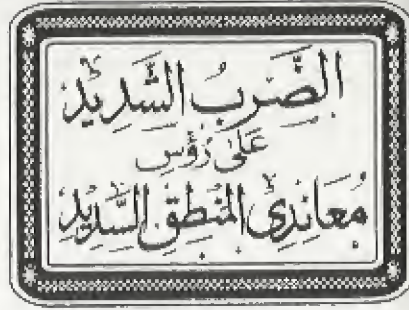 الضَّربُ الشَّدِيْد
عَلٰى رُؤُسِ
مُعَانِدِى المَنْطِقِ السَّدِيْدِ